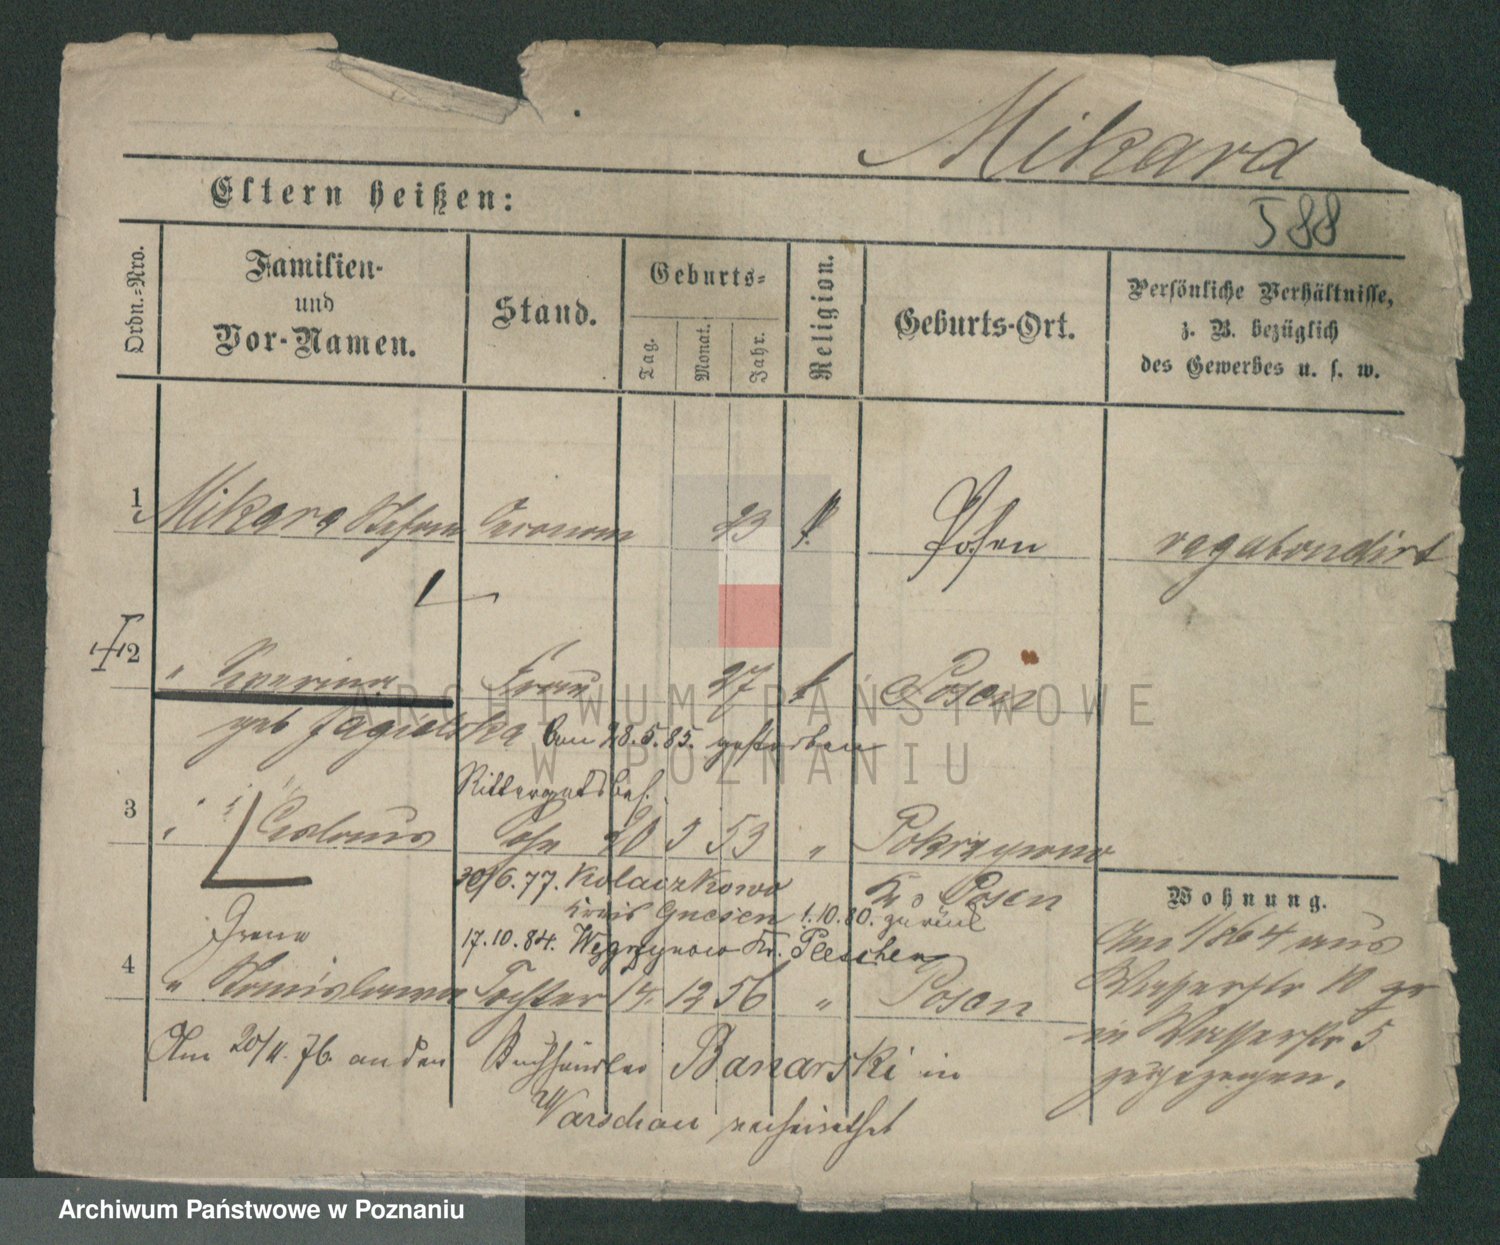 Mikara
Eltern heißen:
588
Ordn.-Nro.
Familien-
und
Vor-Namen.
Stand.
Geburts-
Tag.
Monat.
Jahr.
Religion.
Geburts-Ort.
Persönliche Verhältnisse,
z. B. bezüglich
des Gewerbes u. s. w.
1 Mikara Stefan Oeconom 23 k. Posen vagabondirt
2 " Severina Frau 27 k Posen
geb Jagielska am 28.5.85. gestorben
Rittergutsbes.
3 " Ceslaus Sohn 20 3 53 " Pokrzywno
30/6.77. Kolaczkowo Kr. Posen
Kreis Gnesen 1.10.80. zurück
Wohnung.
Irena 17.10.84. Węgrzynowo Kr. Pleschen
4 " Stanislawa Tochter 14. 12 56 " Posen
Am 20/11. 76. an den Buchhändler Banarski in
Warschau verheirathet
Am 1/8 64 aus
Wasserstr 10 zu
in Wasserstr 5
zugezogen.
ARCHIWUM PAŃSTWOWE
W POZNANIU
Archiwum Państwowe w Poznaniu